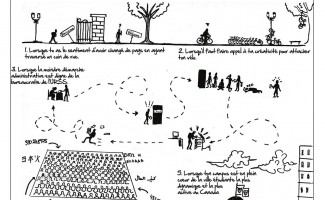 1. Lorsque tu as le sentiment d'avoir changé de pays en ayant
traversé un coin de rue.
2. Lorsqu'il faut faire appel à ta créativité pour attacher
ton vélo.
3. Lorsque la moindre démarche
administrative est digne de la
bureaucratie de l'URSS.
5. Lorsque ton campus est en plein
cœur de la ville étudiante la plus
dynamique et la plus
active du Canada